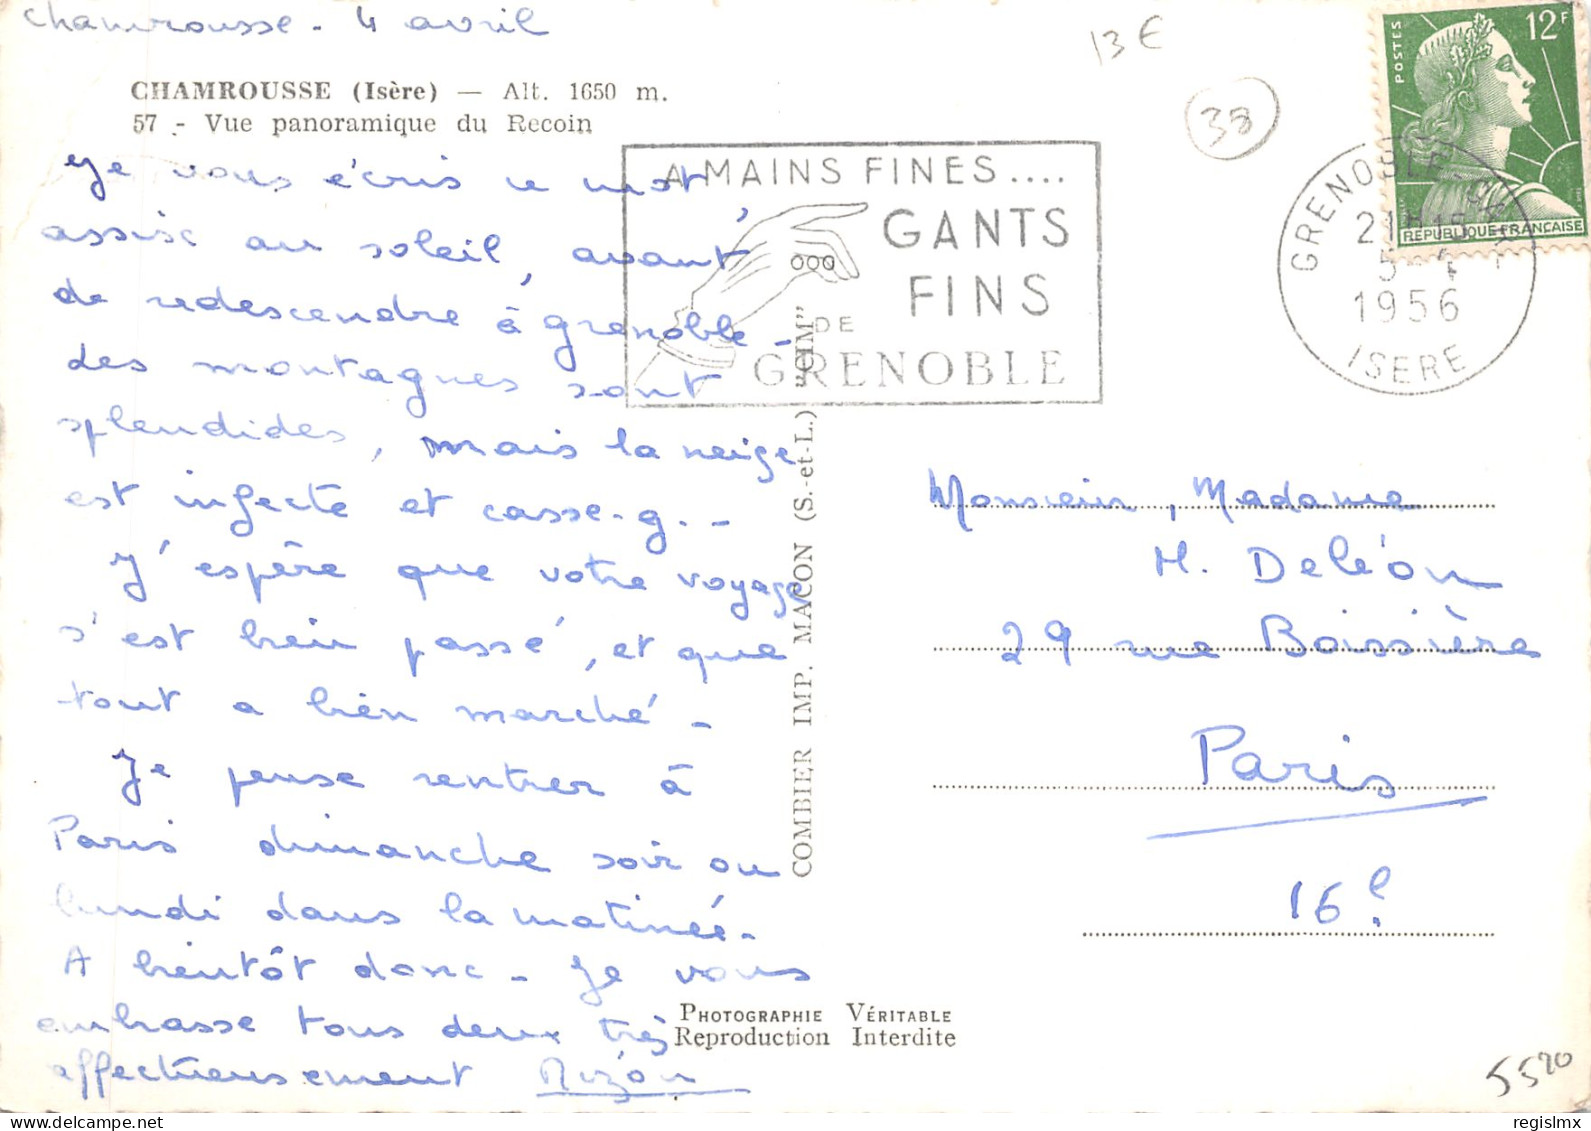 Chamrousse - 4 avril
13 €
38
CHAMROUSSE (Isère) — Alt. 1650 m.
57 - Vue panoramique du Recoin
POSTES
12F
REPUBLIQUE FRANCAISE
A MAINS FINES....
GANTS
FINS
DE
GRENOBLE
GRENOBLE
21H15
5-4
1956
ISERE
Je vous écris ce mot
assise au soleil, avant
de redescendre à Grenoble -
des montagnes sont
splendides, mais la neige
est infecte et casse-g. -
J'espère que votre voyage
s'est bien passé, et que
tout a bien marché -
Je pense rentrer à
Paris dimanche soir ou
lundi dans la matinée -
A bientôt donc - Je vous
embrasse tous deux très
affectueusement
COMBIER IMP. MACON (S.-et-L.) "CIM"
Monsieur, Madame
H. Deléon
29 rue Boissière
Paris
16e
PHOTOGRAPHIE VÉRITABLE
Reproduction Interdite
5520
regislmx